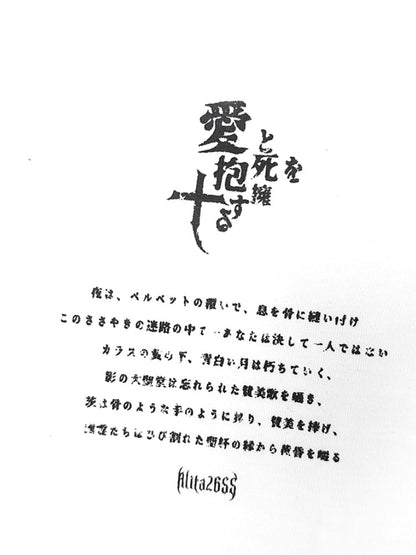 愛と死を
抱擁する
夜は、ベルベットの覆いで、息を骨に縫い付け
このささやきの迷路の中で－あなたは決して一人ではない
カラスの下、青白い月は朽ちていく、
影の大聖堂は忘れられた賛美歌を囁き、
茨は骨のような手のように昇り、賛美を捧げ、
たちはひび割れた聖杯の縁から黄昏を啜る
Alita26SS